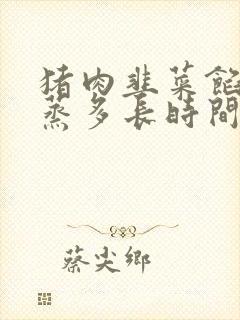 猪肉韭菜餡
蒸多長時間
蔡尖鄉